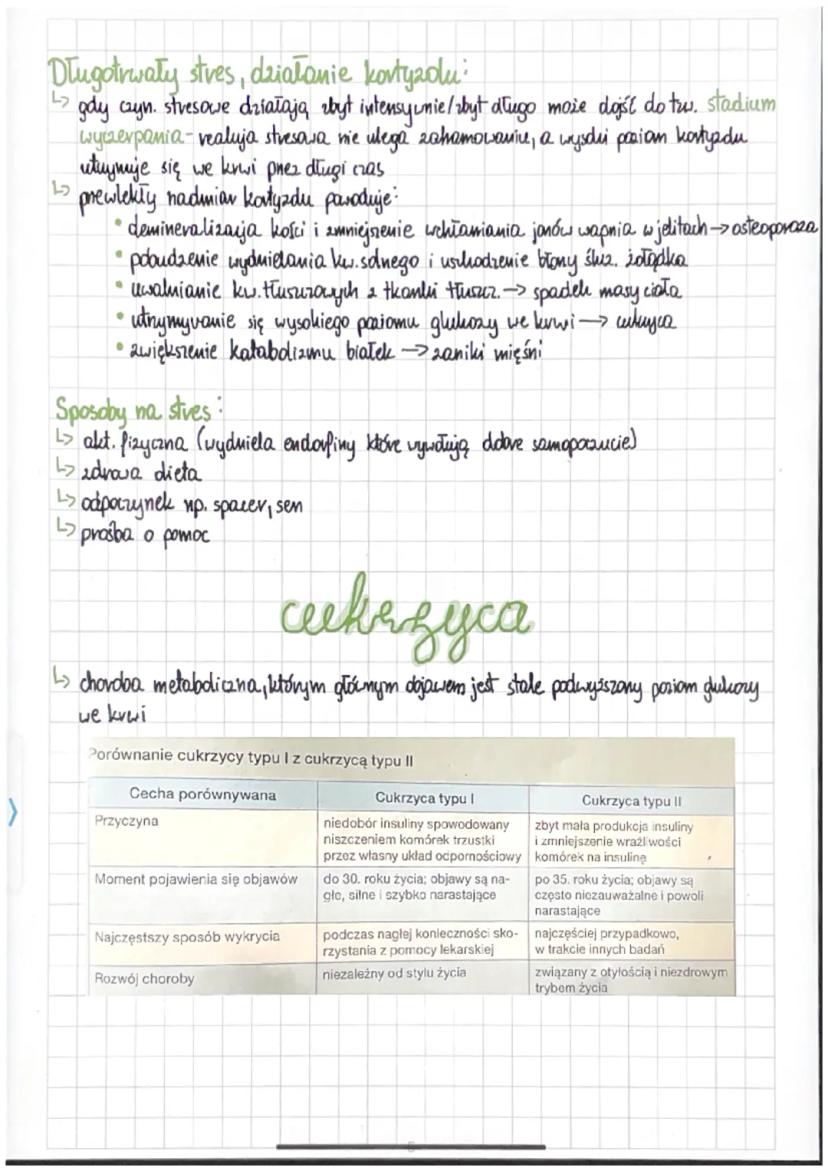 Długotrwały stres, działanie kortyzolu:
↳ gdy czyn. stresowe działają zbyt intensywnie/zbyt długo może dojść do tzw. stadium
wyczerpania - reakcja stresowa nie ulega zahamowaniu, a wysoki poziom kortyzolu
utrzymuje się we krwi przez długi czas
↳ przewlekły nadmiar kortyzolu powoduje:
• demineralizacja kości i zmniejszenie wchłaniania jonów wapnia w jelitach → osteoporoza
• pobudzenie wydzielania kw. solnego i uszkodzenie błony śluz. żołądka
• uwalnianie kw. tłuszczowych z tkanki tłuszcz. → spadek masy ciała
• utrzymywanie się wysokiego poziomu glukozy we krwi → cukrzyca
• zwiększenie katabolizmu białek → zaniki mięśni
Sposoby na stres:
↳ akt. fizyczna (wydziela endorfiny które wywołują dobre samopoczucie)
↳ zdrowa dieta
↳ odpoczynek np. spacer, sen
↳ prośba o pomoc
cukrzyca
↳ choroba metaboliczna, którym głównym objawem jest stale podwyższony poziom glukozy
we krwi
Porównanie cukrzycy typu I z cukrzycą typu II
Cecha porównywana Cukrzyca typu I Cukrzyca typu II
Przyczyna niedobór insuliny spowodowany zbyt mała produkcja insuliny
niszczeniem komórek trzustki i zmniejszenie wrażliwości
przez własny układ odpornościowy komórek na insulinę
Moment pojawienia się objawów do 30. roku życia; objawy są na- po 35. roku życia; objawy są
głe, silne i szybko narastające często niezauważalne i powoli
narastające
Najczęstszy sposób wykrycia podczas nagłej konieczności sko- najczęściej przypadkowo,
rzystania z pomocy lekarskiej w trakcie innych badań
Rozwój choroby niezależny od stylu życia związany z otyłością i niezdrowym
trybem życia